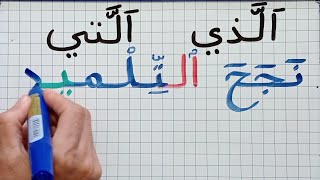 اَلَّذي اَلَّتي
نَجَحَ ٱلتِّلْميد